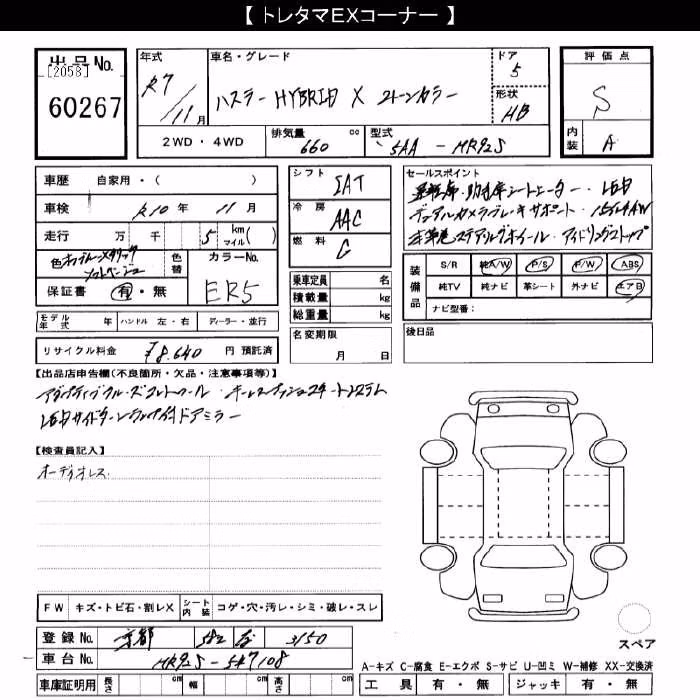 【 トレタマEXコーナー 】
出品No.
[2058]
60267
年式
R7/11月
車名・グレード
ハスラー HYBRID X 2トーンカラー
ドア
5
形状
HB
評価点
S
内装
A
2WD・4WD
排気量
660 cc
型式
5AA-MR92S
車歴 自家用・( )
車検 R10年 11月
走行 万 千 5 km マイル( )
色
色替
カラーNo.
ER5
保証書 有・無
シフト
IAT
冷房
AAC
燃料
G
セールスポイント
運転席・助手席シートヒーター・LED
デュアルカメラブレーキサポート・15インチAW
本革巻ステアリングホイール・アイドリングストップ
装備品
S/R 純A/W P/S P/W ABS
純TV 純ナビ 革シート 外ナビ エアB
ナビ型番:
乗車定員 名
積載量 kg
総重量 kg
モデル年式 年 ハンドル 左・右 ディーラー・並行
名変期限
月 日
後日品
リサイクル料金 ¥8,640 円 預託済
【出品店申告欄(不良箇所・欠品・注意事項等)】
アダプティブクルーズコントロール・キーレスプッシュスタートシステム
LEDサイドターンランプ付ドアミラー
【検査員記入】
オーディオレス
FW キズ・トビ石・割レX シート内装 コゲ・穴・汚レ・シミ・破レ・スレ
登録No. 京都 582 3150
車台No. MR92S-547108
車庫証明用 長さ cm 幅 cm 高さ cm
スペア
A-キズ C-腐食 E-エクボ S-サビ U-凹ミ W-補修 XX-交換済
工具 有・無 ジャッキ 有・無